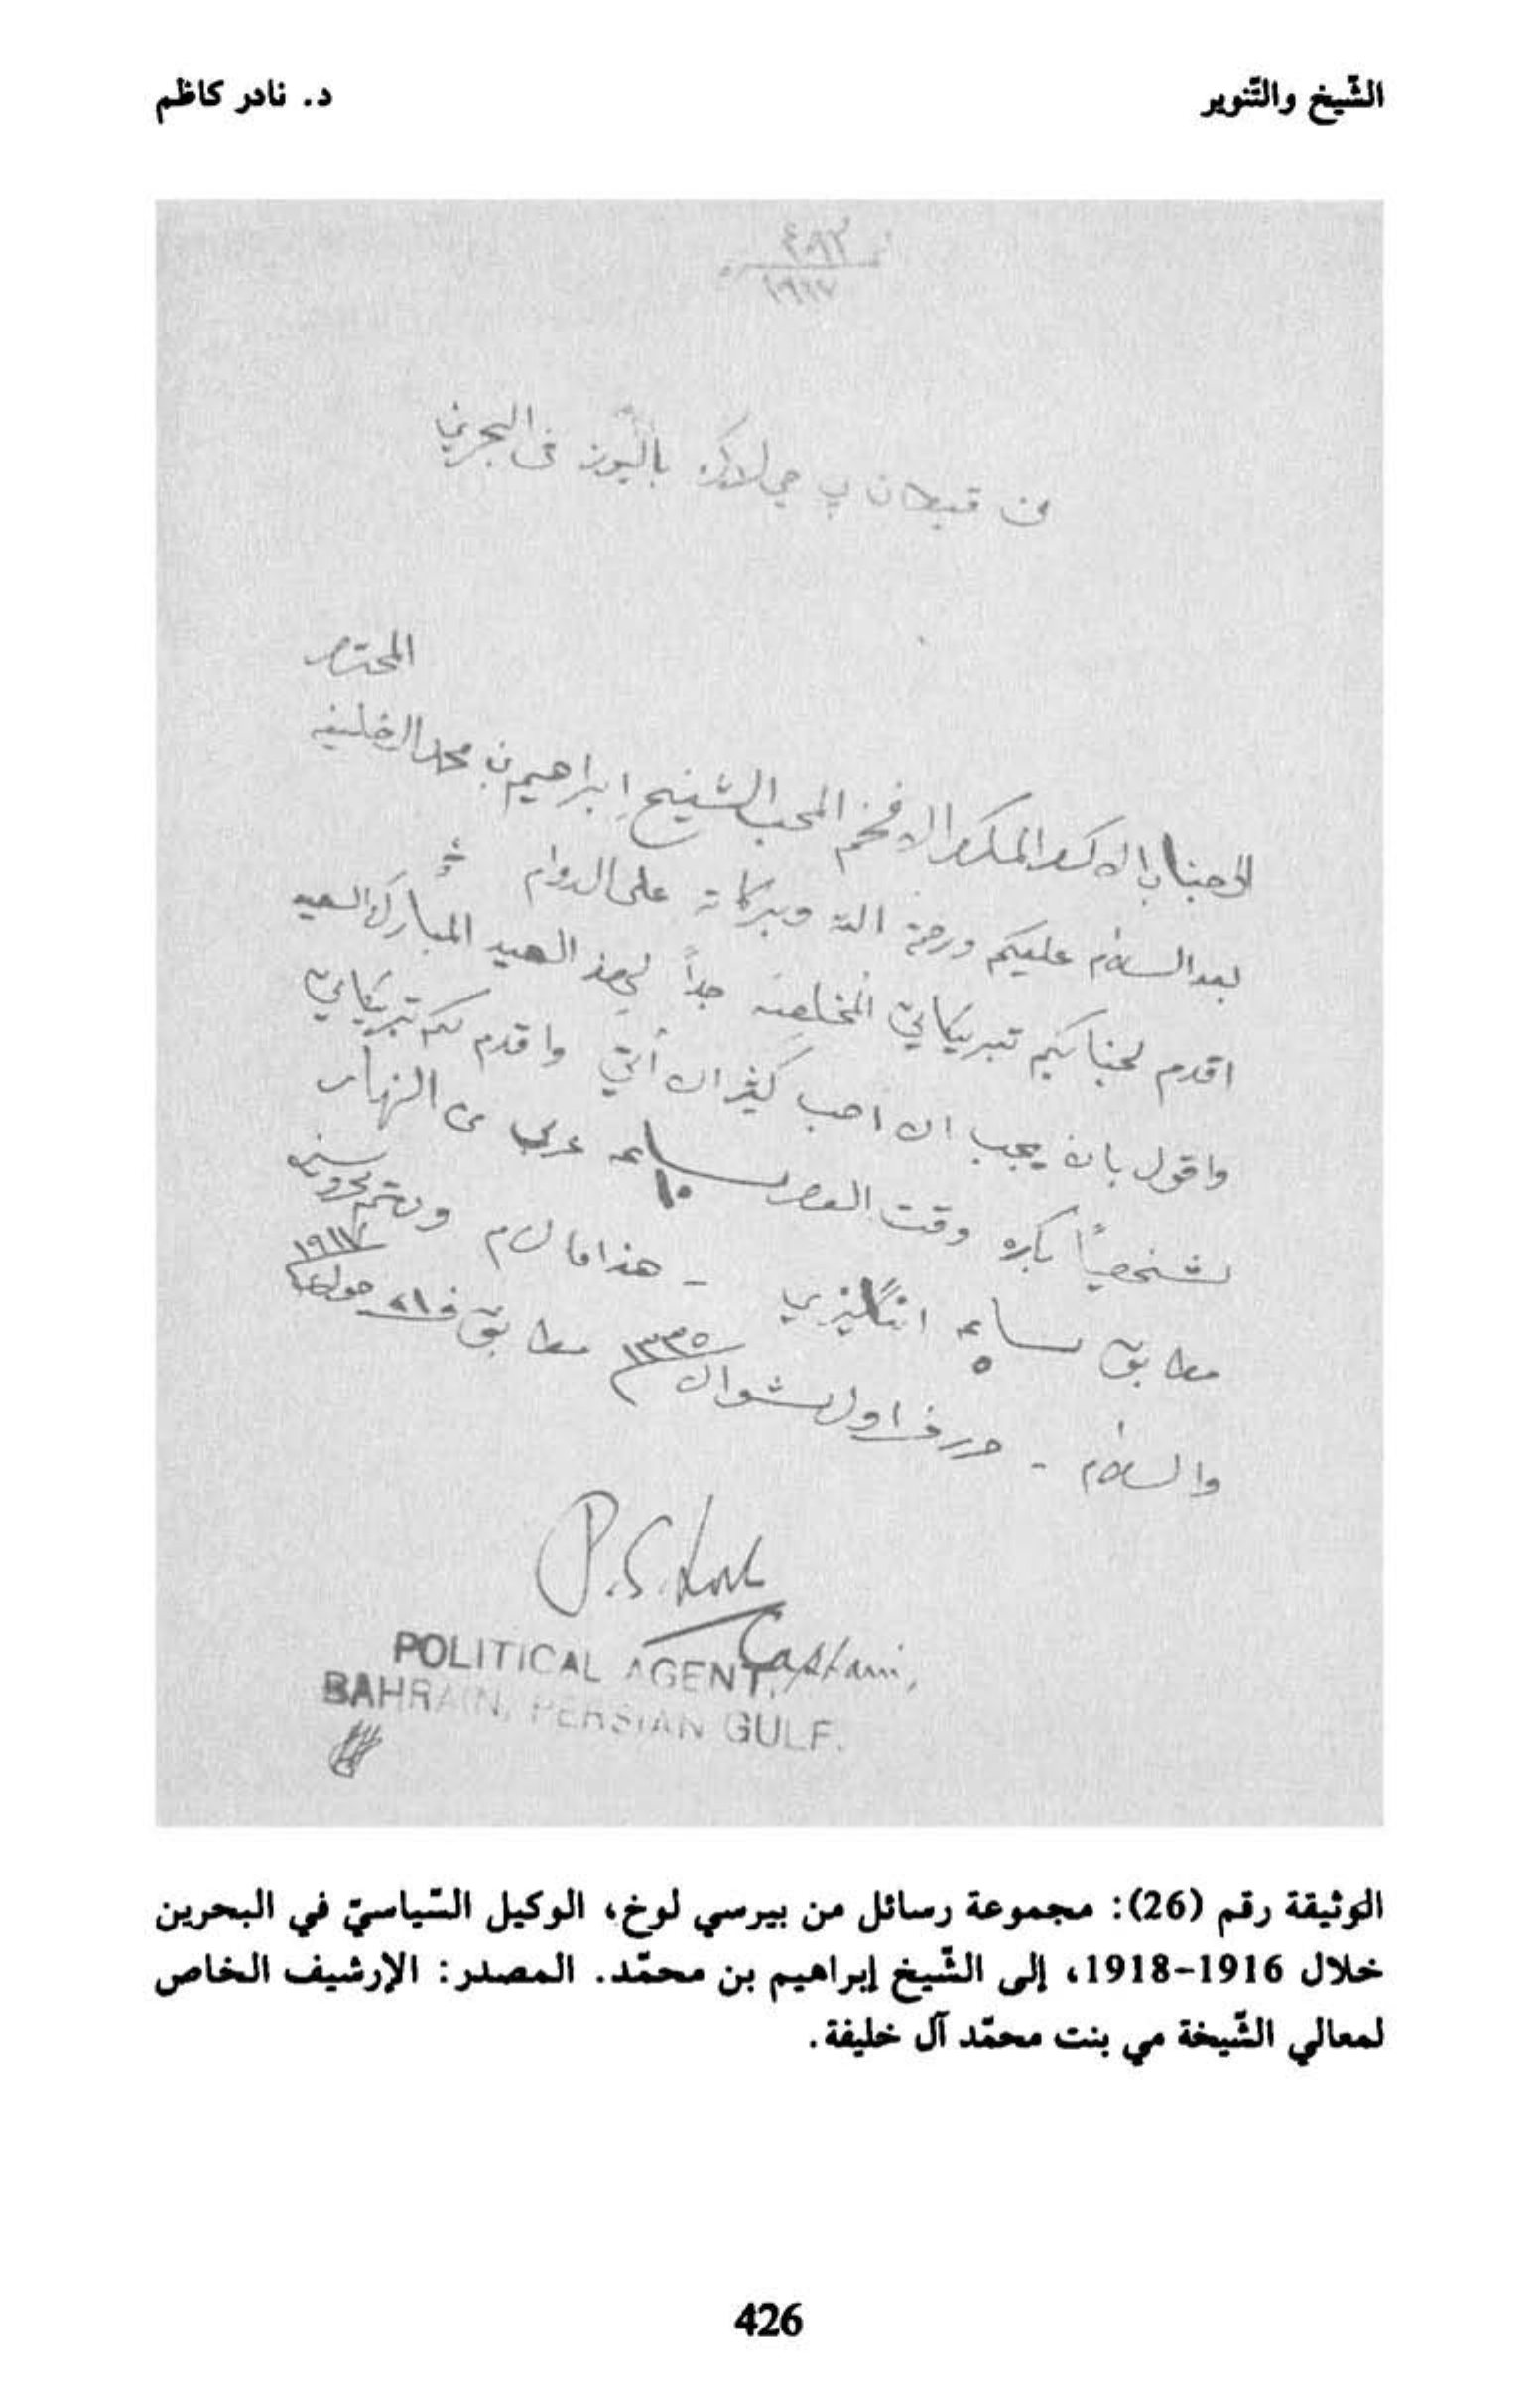 الشّيخ والتّنوير
د. نادر كاظم
١٩١٧
من قبطان پي جي لاكه باليوز في البحرين
المحترم
الى جناب الاكرم المكرم الافخم المحب الشيخ إبراهيم بن محمد الخليفه
بعد السلام عليكم ورحمة الله وبركاته على الدوام
اقدم لجنابكم تبريكاتي المخلصه جداً لهذ العيد المبارك السعيد
واقول بان يجب ان احب كثير ان أتي واقدم لكم تبريكاتي
شخصياً باكره وقت العصر ساعه ١٠ عربي من النهار
مطابق ساعه ٥ انگليزي - هذا ما لزم ودمتم محروسين
والسلام - حرر في اول شوال ١٣٣٥ مطابق في ٢١ جولاي ١٩١٧
P.S. Loch
Captain,
POLITICAL AGENT,
BAHRAIN, PERSIAN GULF.
الوثيقة رقم (26): مجموعة رسائل من بيرسي لوخ، الوكيل السّياسيّ في البحرين
خلال 1916-1918، إلى الشّيخ إبراهيم بن محمّد. المصدر: الإرشيف الخاص
لمعالي الشّيخة مي بنت محمّد آل خليفة.
426